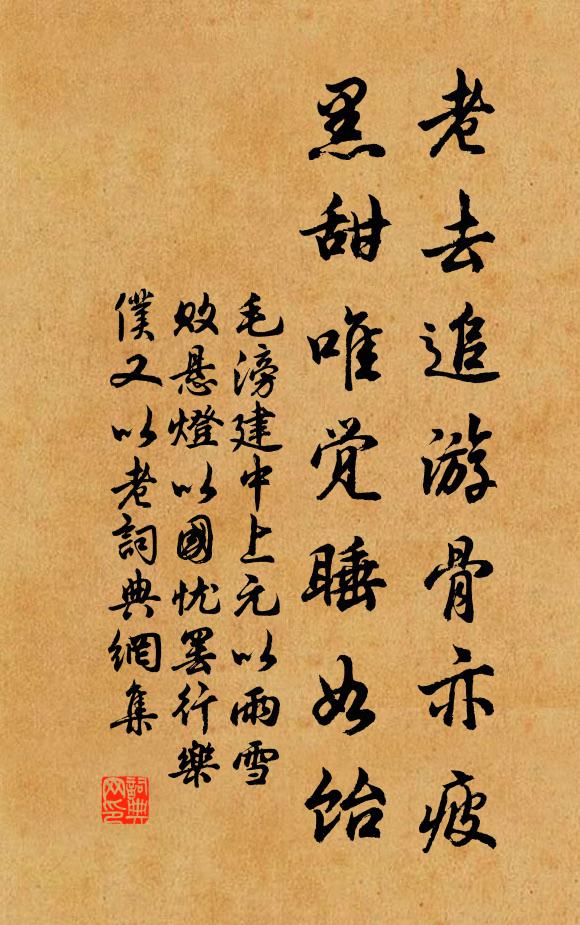 老去追游骨亦疲
黑甜唯觉睡如饴
毛滂建中上元以雨雪
败悬燈以國忧罢行樂
僕又以老詞典網集
詞典
网印